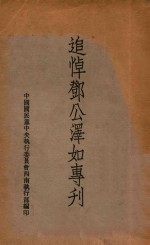 追悼鄧公澤如專刊
中國國民黨中央執行委員會西南執行部編印